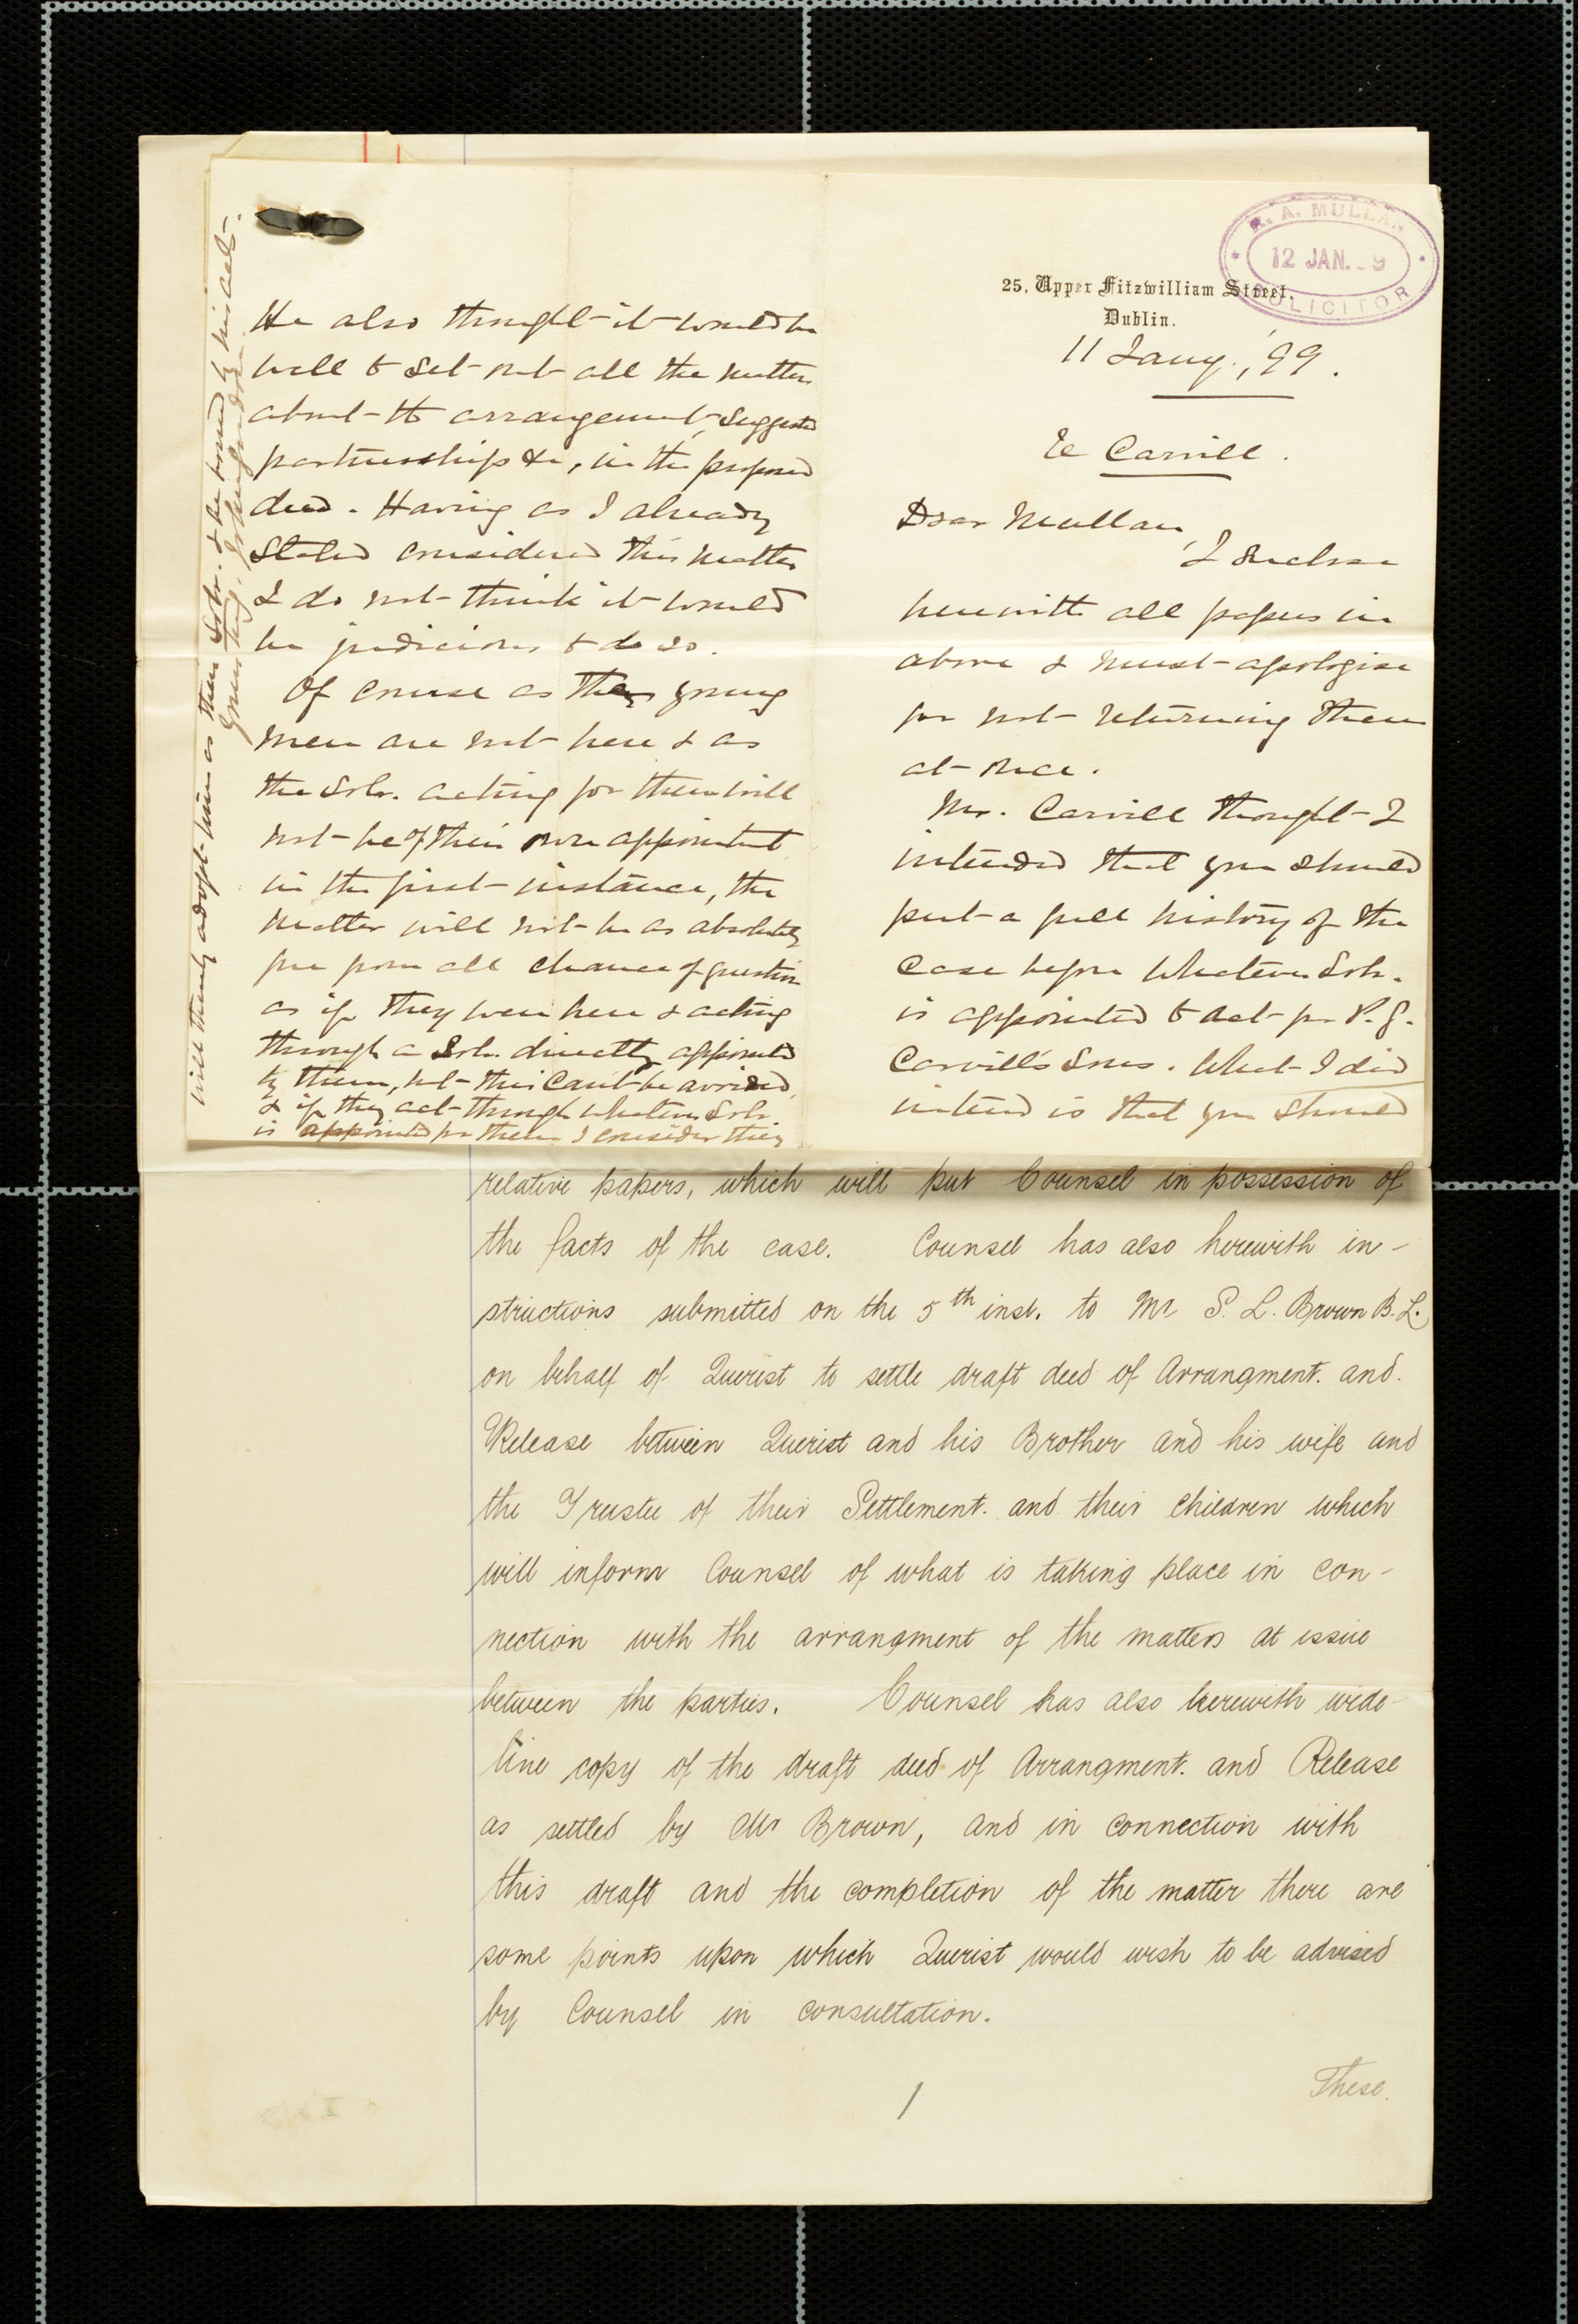 R. A. MULLAN
12 JAN. 9
SOLICITOR
25, Upper Fitzwilliam Street,
Dublin.
11 Jany., 99.
Re Carvill.
Dear Mullan,
I enclose
herewith all papers in
above & must apologise
for not returning them
at once.
Mr. Carvill thought I
intended that you should
put a full history of the
case before whatever Solr.
is appointed to act for P. J.
Carvill's sons. What I did
intend is that you should
He also thought it would be
well to set out all the matters
about the arrangement, suggested
partnership &c, in the proposed
deed. Having as I already
stated considered this matter
I do not think it would
be judicious to do so.
Of course as these young
men are not here & as
the Solr. acting for them will
not be of their own appointment
in the first instance, the
matter will not be as absolutely
free from all chance of question
as if they were here & acting
through a Solr. directly appointed
by them, but this can't be avoided,
& if they act through whatever Solr.
is appointed for them I consider they
will thereby adopt him as their Solr. & be bound by his acts.
relative papers, which will put Counsel in possession of
the facts of the case. Counsel has also herewith in-
structions submitted on the 5th inst. to Mr S. L. Brown B.L.
on behalf of Querist to settle draft deed of Arrangment. and.
Release between Querist and his Brother and his wife and
the Trustee of their Settlement. and their children which
will inform Counsel of what is taking place in con-
nection with the arrangment of the matters at issue
between the parties. Counsel has also herewith wide-
line copy of the draft deed of Arrangment. and Release
as settled by Mr Brown, and in connection with
this draft and the completion of the matter there are
some points upon which Querist would wish to be advised
by Counsel in consultation.
1
These.